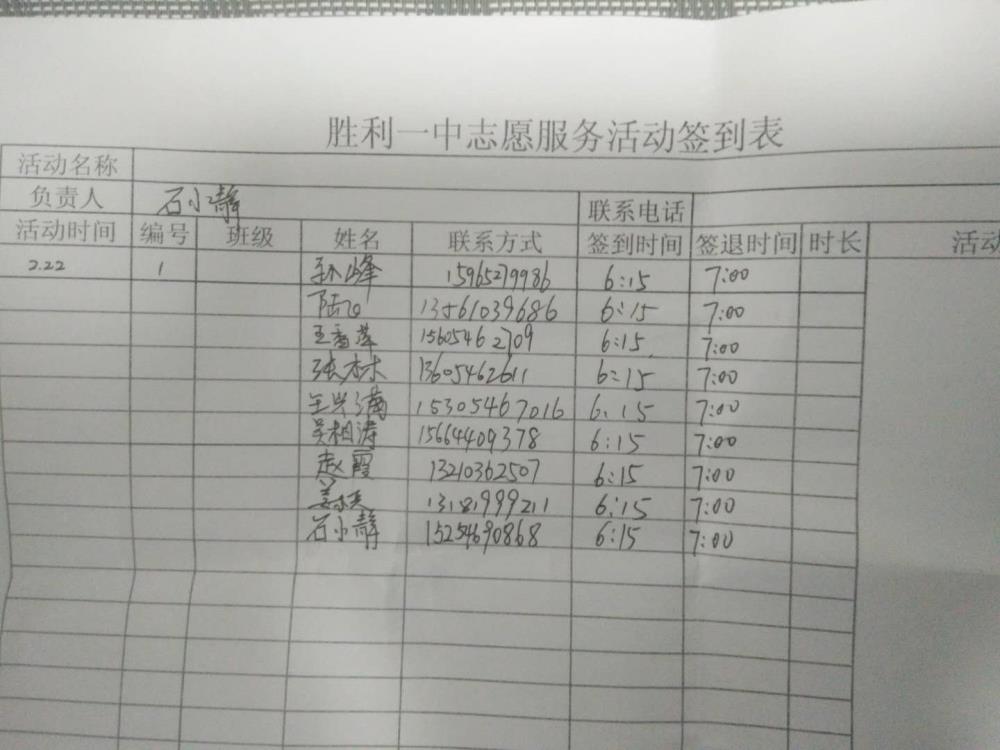 胜利一中志愿服务活动签到表
活动名称
负责人 石小静 联系电话
活动时间 编号 班级 姓名 联系方式 签到时间 签退时间 时长 活动
2.22 1 孙峰 15965279986 6:15 7:00
陆飞 13561039686 6:15 7:00
王香萍 15605462709 6:15 7:00
张杰林 13605462611 6:15 7:00
王兴满 15305467016 6:15 7:00
吴相涛 15664409378 6:15 7:00
赵霞 13210362507 6:15 7:00
姜 13181999211 6:15 7:00
石小静 15254690868 6:15 7:00